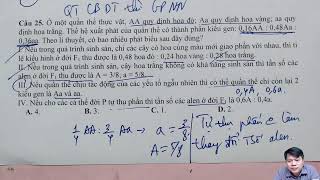 QT CB DT thì GP MN
Câu 25. Ở một quần thể thực vật, AA quy định hoa đỏ; Aa quy định hoa vàng; aa quy
định hoa trắng. Thế hệ xuất phát của quần thể có thành phần kiểu gen: 0,16AA : 0,48Aa :
0,36aa. Theo lí thuyết, có bao nhiêu phát biểu sau đây đúng?
I. Nếu trong quá trình sinh sản, chỉ các cây có hoa cùng màu mới giao phấn với nhau, thì tỉ
lệ kiểu hình ở đời F1 thu được là 0,48 hoa đỏ: 0,24 hoa vàng : 0,28 hoa trắng.
II. Nếu trong quá trình sinh sản, cây hoa trắng không có khả năng sinh sản thì tần số các
alen ở đời F1 thu được là A = 3/8, a = 5/8.
III. Nếu quần thể chịu tác động của các yếu tố ngẫu nhiên thì có thể quần thể chỉ còn lại 2
kiểu gen là Aa và aa.
0,4A, 0,6a.
IV. Nếu cho các cá thể đời P tự thụ phấn thì tần số các alen ở đời F1 là 0,6A : 0,4a.
A. 4. B. 3. C. 1. D. 2.
1/4 AA : 3/4 Aa → a = 3/8
A = 5/8
Tự thụ phấn ko làm
thay đổi TSố alen.